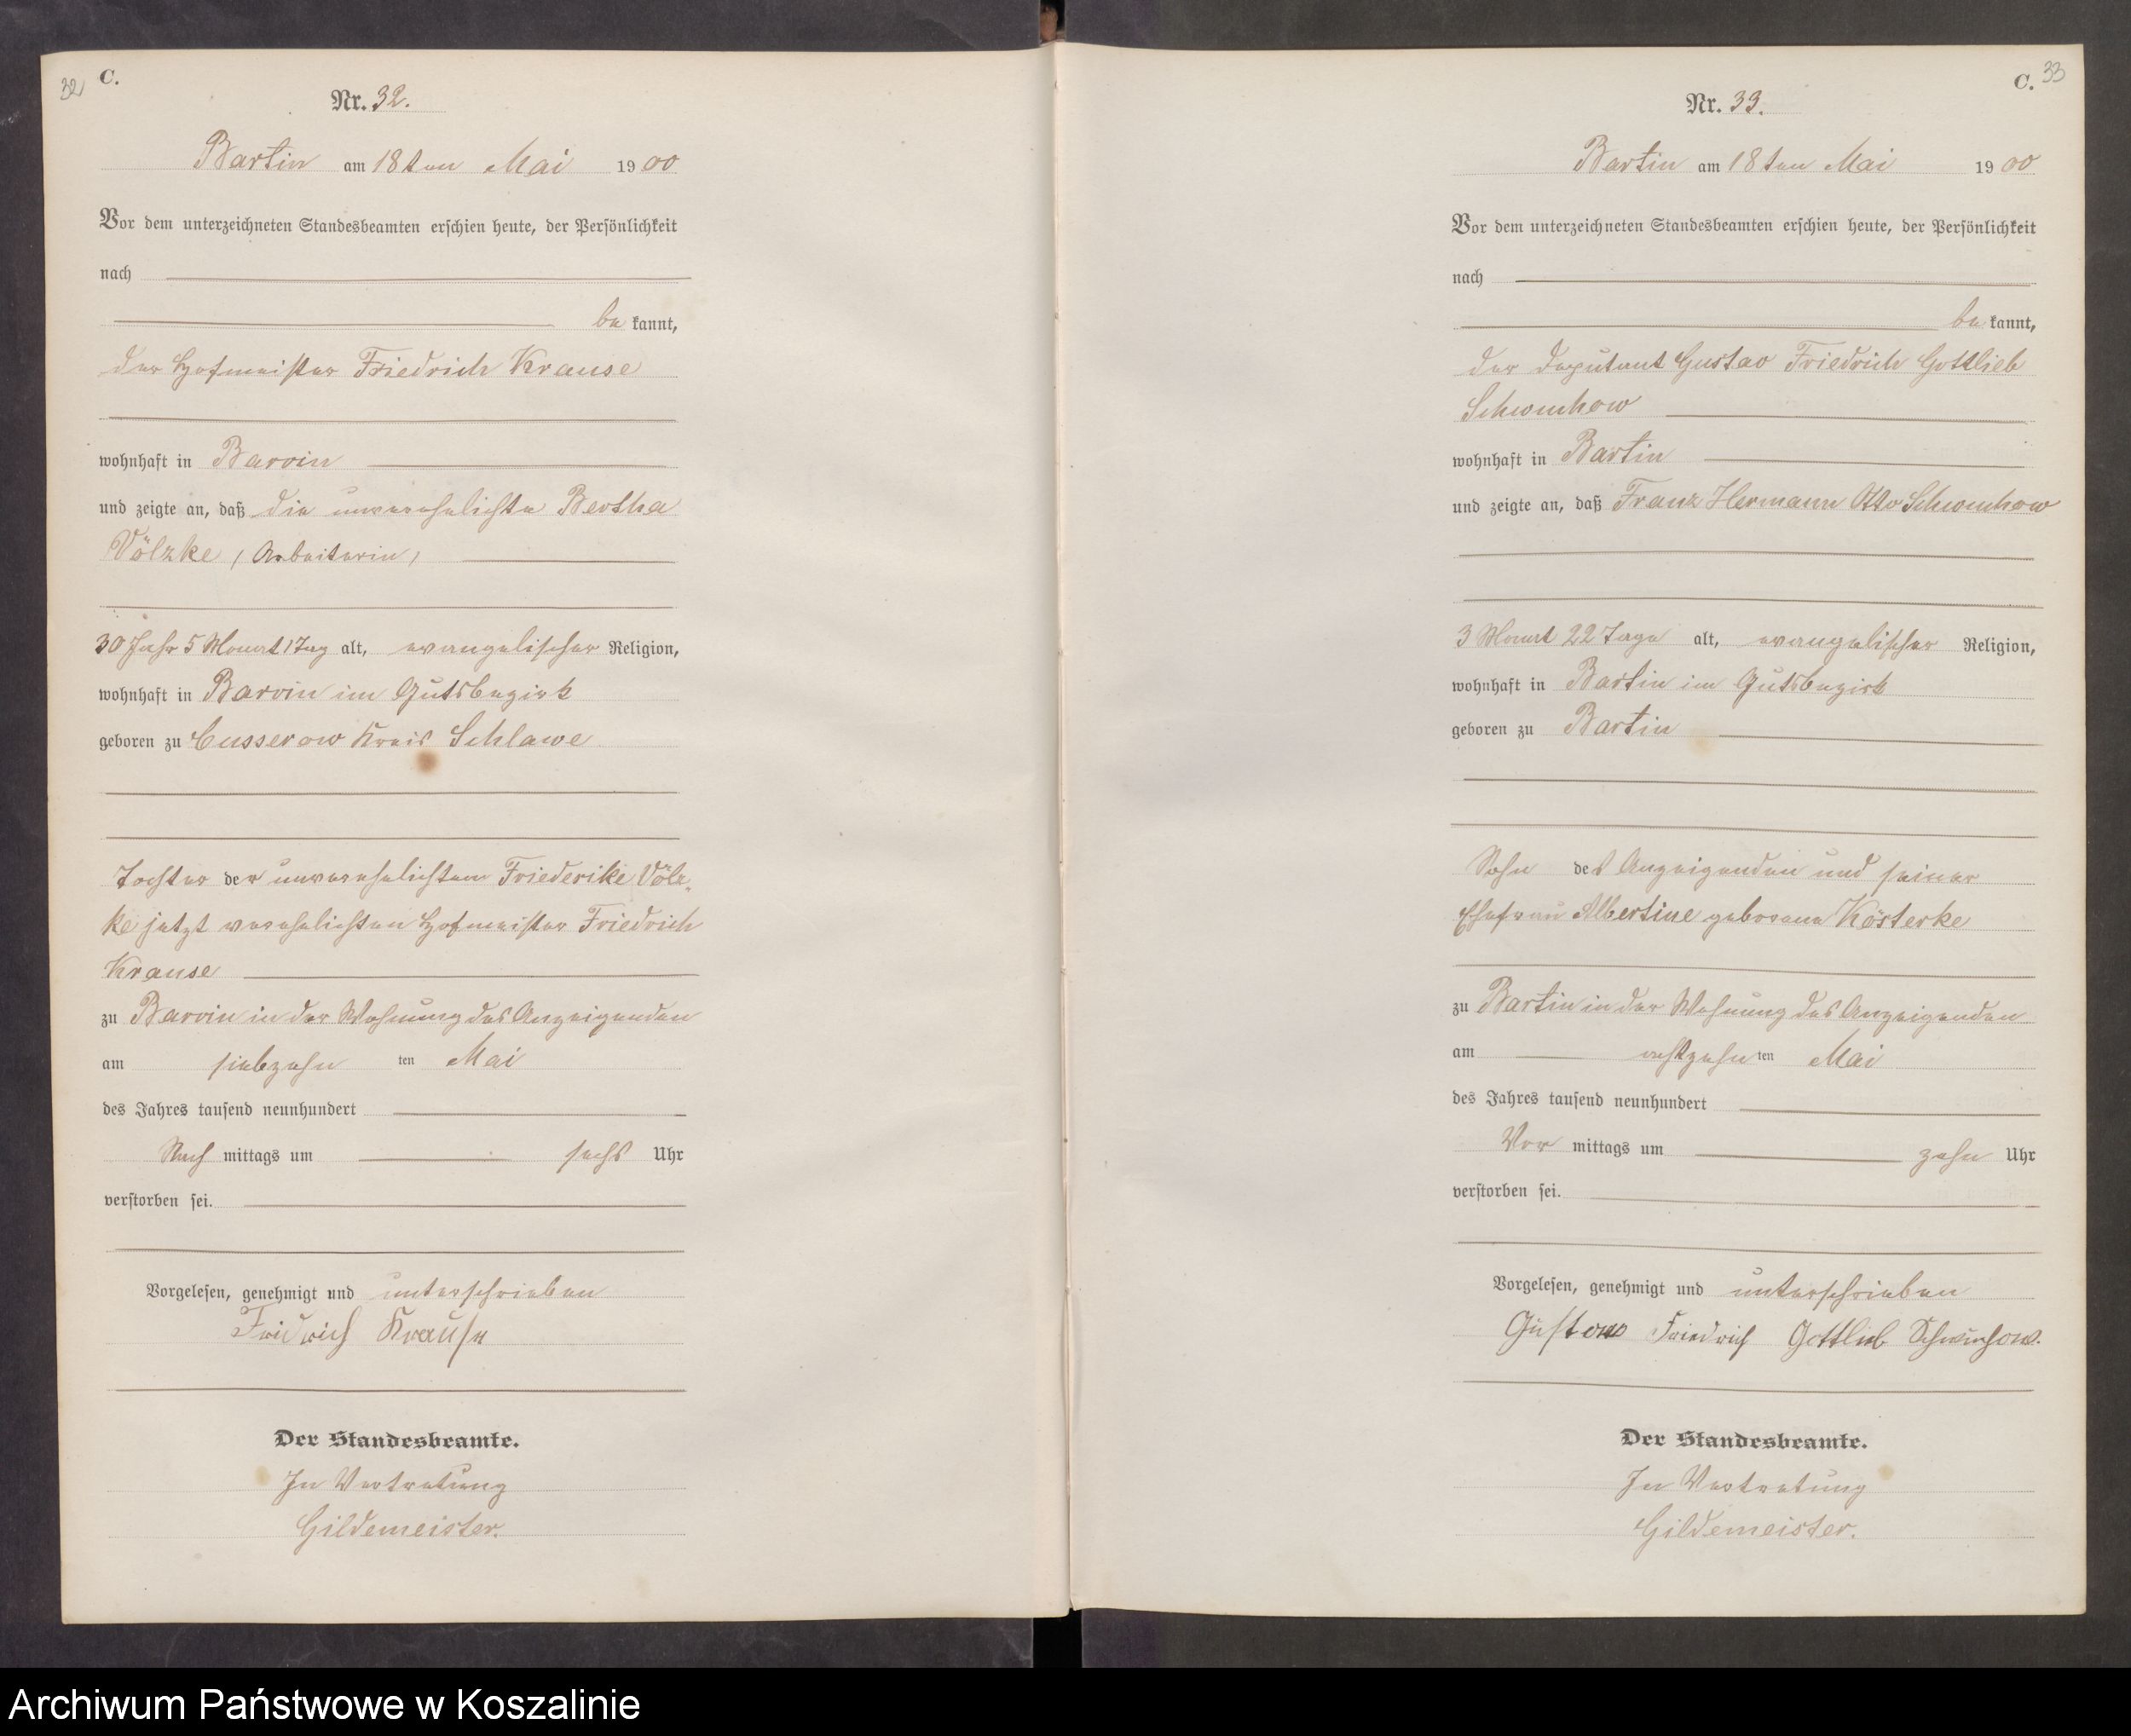 32
C.
Nr. 32.
Bartin am 18ten Mai 1900
Vor dem unterzeichneten Standesbeamten erschien heute, der Persönlichkeit
nach
bekannt,
der Hofmeister Friedrich Krause
wohnhaft in Barvin
und zeigte an, daß die unverehelichte Bertha
Völzke (Arbeiterin)
30 Jahr 5 Monat 1 Tag alt, evangelischer Religion,
wohnhaft in Barvin im Gutsbezirk
geboren zu Cusserow Kreis Schlawe
Tochter der unverehelichten Friederike Völz-
ke jetzt verehelichten Hofmeister Friedrich
Krause
zu Barvin in der Wohnung des Anzeigenden
am siebzehnten Mai
des Jahres tausend neunhundert
Nachmittags um sechs Uhr
verstorben sei.
Vorgelesen, genehmigt und unterschrieben
Fridrich Krause
Der Standesbeamte.
In Vertretung
Gildemeister.
33
C.
Nr. 33.
Bartin am 18ten Mai 1900
Vor dem unterzeichneten Standesbeamten erschien heute, der Persönlichkeit
nach
bekannt,
der Deputant Gustav Friedrich Gottlieb
Schwuchow
wohnhaft in Bartin
und zeigte an, daß Franz Hermann Otto Schwuchow
3 Monat 22 Tage alt, evangelischer Religion,
wohnhaft in Bartin im Gutsbezirk
geboren zu Bartin
Sohn des Anzeigenden und seiner
Ehefrau Albertine geborene Kösterke
zu Bartin in der Wohnung des Anzeigenden
am achtzehnten Mai
des Jahres tausend neunhundert
Vormittags um zehn Uhr
verstorben sei.
Vorgelesen, genehmigt und unterschrieben
Gustow Friedrich Gottlieb Schwuchow.
Der Standesbeamte.
In Vertretung
Gildemeister.
Archiwum Państwowe w Koszalinie